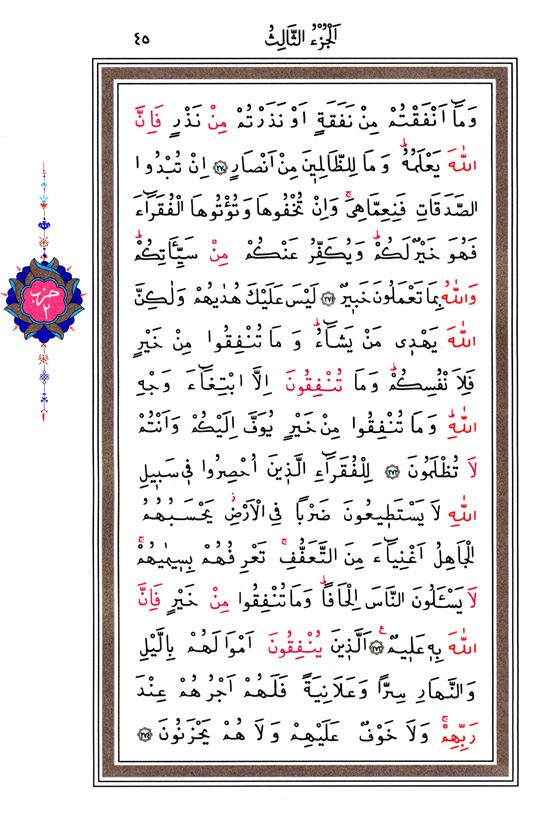 اَلْجُزْءُ الثَّالِثُ
٤٥
وَمَٓا اَنْفَقْتُمْ مِنْ نَفَقَةٍ اَوْ نَذَرْتُمْ مِنْ نَذْرٍ فَاِنَّ
اللّٰهَ يَعْلَمُهُۜ وَمَا لِلظَّالِمٖينَ مِنْ اَنْصَارٍ ﴿٢٧٠﴾ اِنْ تُبْدُوا
الصَّدَقَاتِ فَنِعِمَّا هِيَۚ وَاِنْ تُخْفُوهَا وَتُؤْتُوهَا الْفُقَرَٓاءَ
فَهُوَ خَيْرٌ لَكُمْۜ وَيُكَفِّرُ عَنْكُمْ مِنْ سَيِّـَٔاتِكُمْۜ
وَاللّٰهُ بِمَا تَعْمَلُونَ خَبٖيرٌ ﴿٢٧١﴾ لَيْسَ عَلَيْكَ هُدٰيهُمْ وَلٰكِنَّ
اللّٰهَ يَهْدٖي مَنْ يَشَٓاءُۜ وَمَا تُنْفِقُوا مِنْ خَيْرٍ
فَلِاَنْفُسِكُمْۜ وَمَا تُنْفِقُونَ اِلَّا ابْتِغَٓاءَ وَجْهِ
اللّٰهِۜ وَمَا تُنْفِقُوا مِنْ خَيْرٍ يُوَفَّ اِلَيْكُمْ وَاَنْتُمْ
لَا تُظْلَمُونَ ﴿٢٧٢﴾ لِلْفُقَرَٓاءِ الَّذٖينَ اُحْصِرُوا فٖي سَبٖيلِ
اللّٰهِ لَا يَسْتَطٖيعُونَ ضَرْبًا فِي الْاَرْضِؗ يَحْسَبُهُمُ
الْجَاهِلُ اَغْنِيَٓاءَ مِنَ التَّعَفُّفِۚ تَعْرِفُهُمْ بِسٖيمٰيهُمْۚ
لَا يَسْـَٔلُونَ النَّاسَ اِلْحَافًاۜ وَمَا تُنْفِقُوا مِنْ خَيْرٍ فَاِنَّ
اللّٰهَ بِهٖ عَلٖيمٌࣖ ﴿٢٧٣﴾ اَلَّذٖينَ يُنْفِقُونَ اَمْوَالَهُمْ بِالَّيْلِ
وَالنَّهَارِ سِرًّا وَعَلَانِيَةً فَلَهُمْ اَجْرُهُمْ عِنْدَ
رَبِّهِمْۚ وَلَا خَوْفٌ عَلَيْهِمْ وَلَا هُمْ يَحْزَنُونَ ﴿٢٧٤﴾
حزب
٢